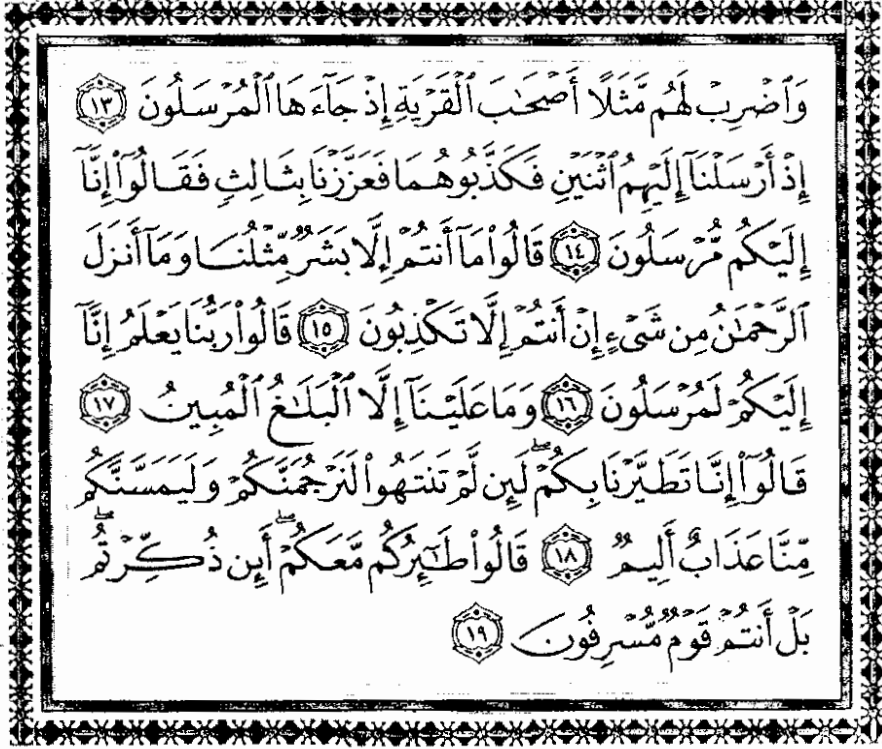 وَٱضْرِبْ لَهُم مَّثَلًا أَصْحَـٰبَ ٱلْقَرْيَةِ إِذْ جَآءَهَا ٱلْمُرْسَلُونَ ١٣
إِذْ أَرْسَلْنَآ إِلَيْهِمُ ٱثْنَيْنِ فَكَذَّبُوهُمَا فَعَزَّزْنَا بِثَالِثٍ فَقَالُوٓا۟ إِنَّآ
إِلَيْكُم مُّرْسَلُونَ ١٤ قَالُوا۟ مَآ أَنتُمْ إِلَّا بَشَرٌ مِّثْلُنَا وَمَآ أَنزَلَ
ٱلرَّحْمَـٰنُ مِن شَىْءٍ إِنْ أَنتُمْ إِلَّا تَكْذِبُونَ ١٥ قَالُوا۟ رَبُّنَا يَعْلَمُ إِنَّآ
إِلَيْكُمْ لَمُرْسَلُونَ ١٦ وَمَا عَلَيْنَآ إِلَّا ٱلْبَلَـٰغُ ٱلْمُبِينُ ١٧
قَالُوٓا۟ إِنَّا تَطَيَّرْنَا بِكُمْ ۖ لَئِن لَّمْ تَنتَهُوا۟ لَنَرْجُمَنَّكُمْ وَلَيَمَسَّنَّكُم
مِّنَّا عَذَابٌ أَلِيمٌ ١٨ قَالُوا۟ طَـٰٓئِرُكُم مَّعَكُمْ ۖ أَئِن ذُكِّرْتُم ۖ
بَلْ أَنتُمْ قَوْمٌ مُّسْرِفُونَ ١٩